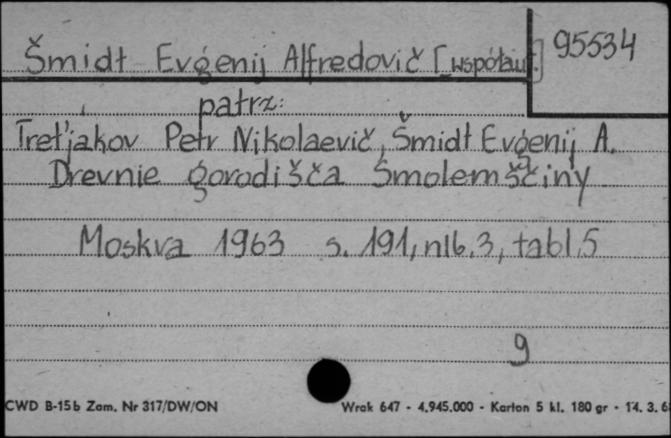 Šmidt Evgenij Alfredovič [współaut.]
95534
patrz:
Tret'jakov Petr Nikolaevič, Šmidt Evgenij A.
Drevnie gorodišča Smolemščiny
Moskva 1963 s. 191, nlb. 3, tabl. 5
9
CWD B-15b Zam. Nr 317/DW/ON
Wrak 647 - 4.945.000 - Karton 5 kl. 180 gr - 14. 3. 6